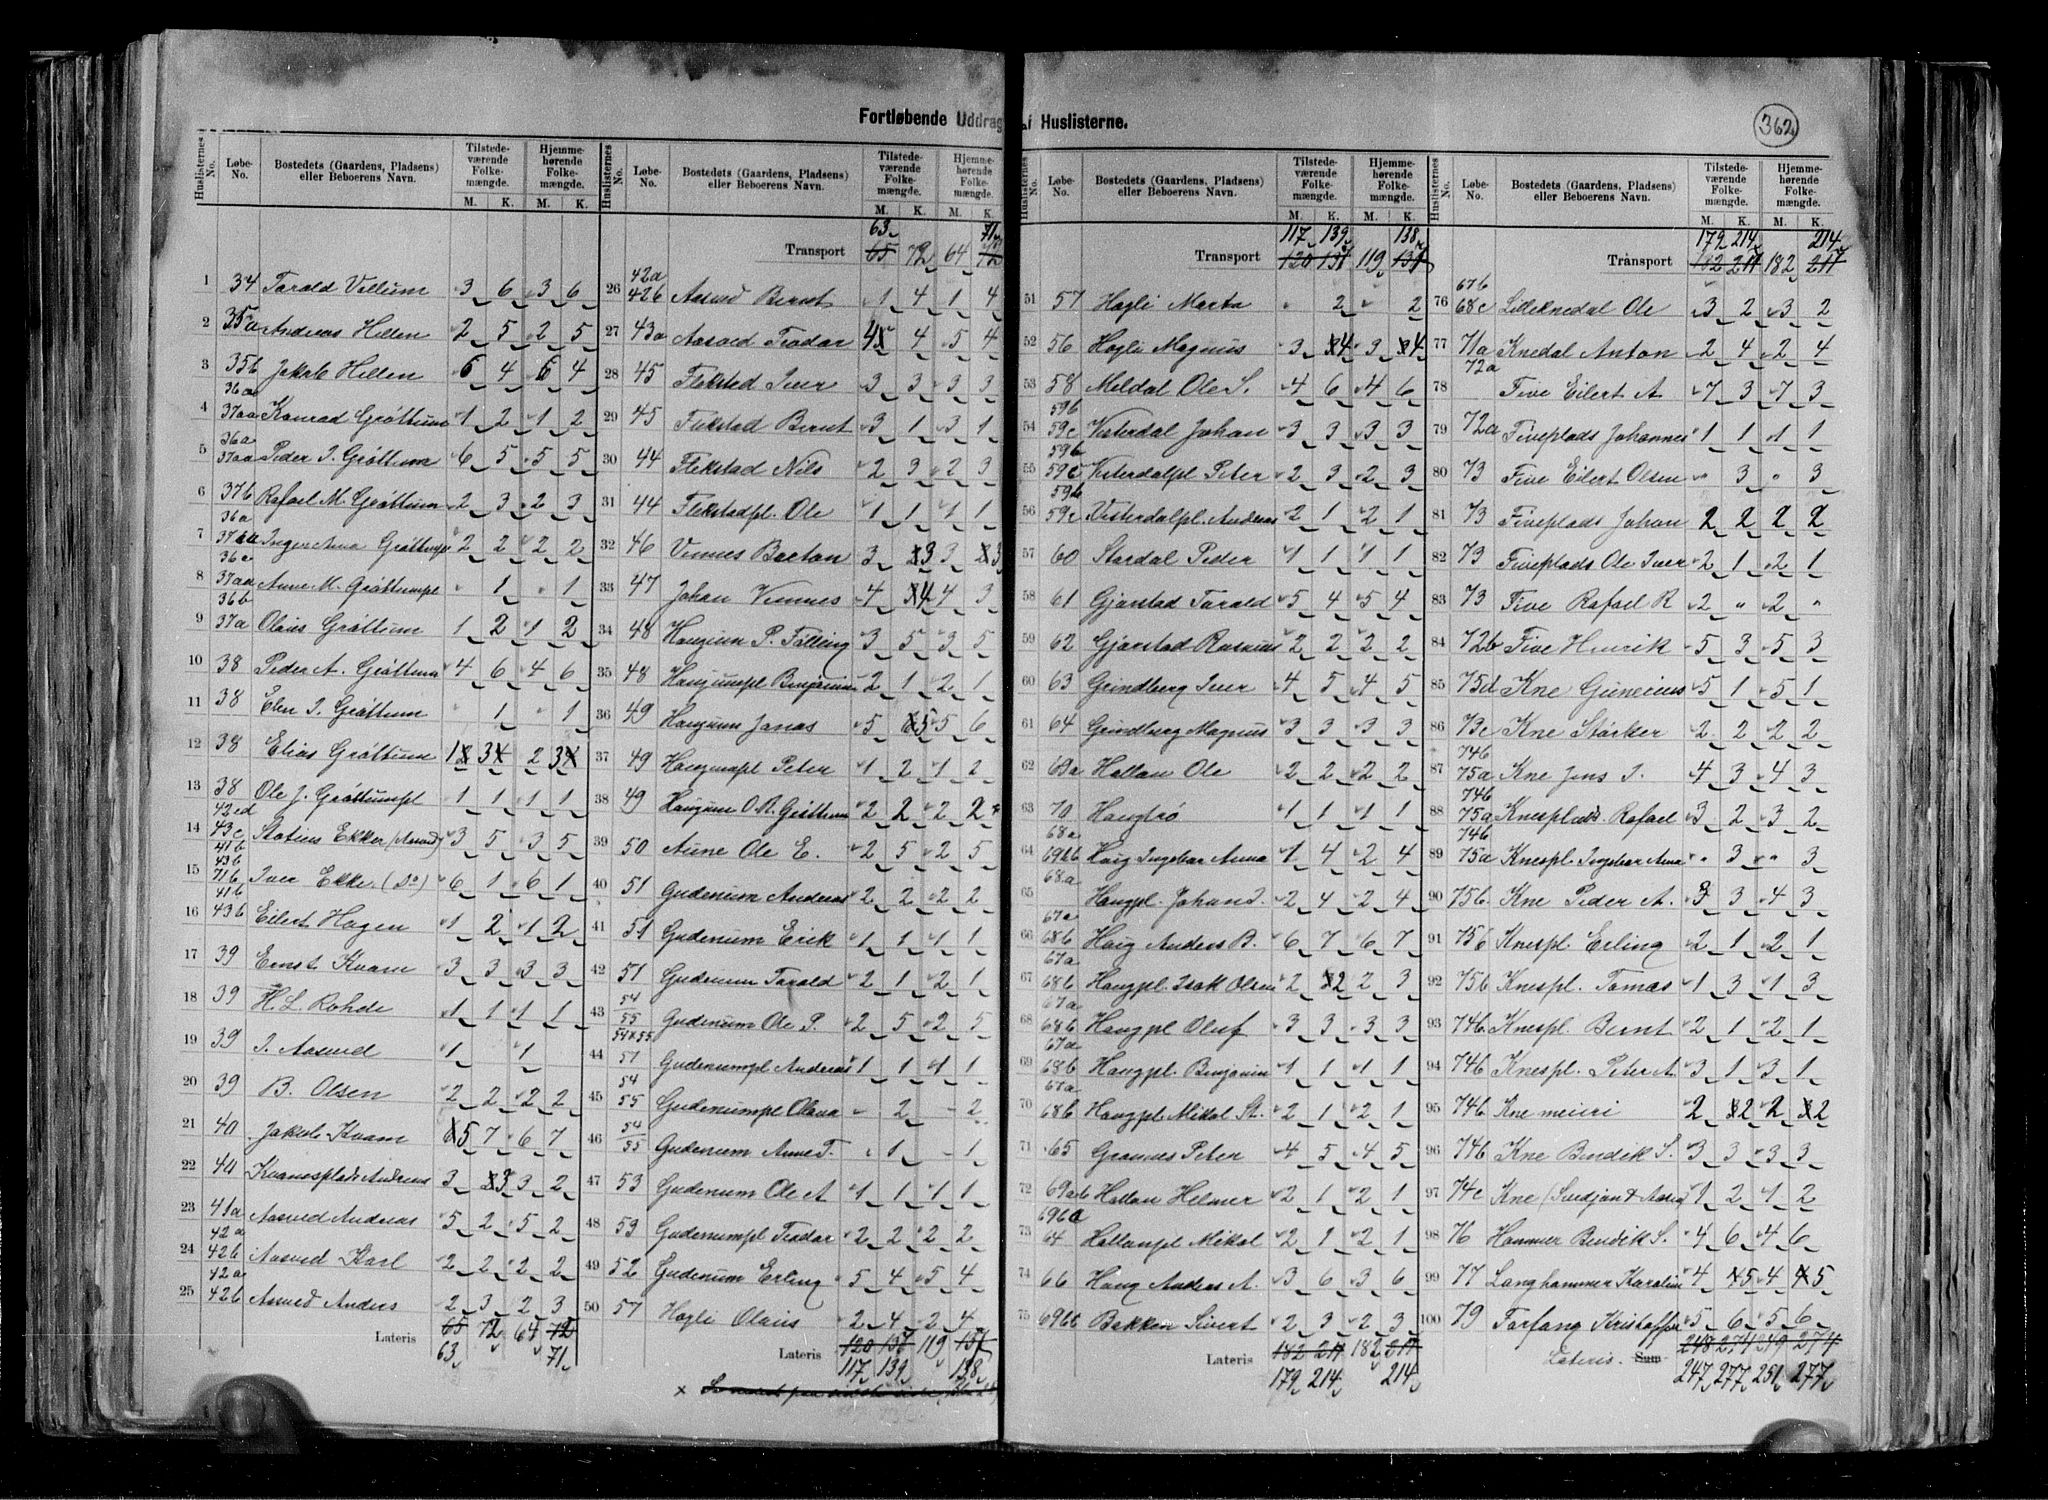 Fortløbende Uddrag af Huslisterne.
362
Huslisternes No. Løbe-No. Bostedets (Gaardens, Pladsens) eller Beboerens Navn. Tilstedeværende Folkemængde. M. K. Hjemmehørende Folkemængde. M. K.
1 34 Tarald Vellum 3 6 3 6
2 35a Andreas Hellen 2 5 2 5
3 35b Jakob Hellen 6 4 6 4
4 36a 37aa Konrad Gröttum 1 2 1 2
5 36a 37aa Peder I. Gröttum 6 5 5 5
6 37b Rafael M. Gröttum 2 3 2 3
7 36a Inger Anna Gröttumpl 2 2 2 2
8 37aa Anne M. Gröttumpl " 1 " 1
9 36b 37a Olaus Gröttum 1 2 1 2
10 38 Peder A. Gröttum 4 6 4 6
11 38 Elen I. Gröttum " 1 " 1
12 38 Elias Gröttum 1 3 2 3
13 38 Ole J. Gröttumpl 1 1 1 1
14 42cd 43c Statius Ekker (Aasved) 3 5 3 5
15 Iver Ekker (Do) 6 1 6 1
16 41b 43b Eilert Hagen 1 2 1 2
17 39 Ernst Kvam 3 3 3 3
18 39 H. L. Rohde 1 1 1 1
19 39 I. Aasved 1 1
20 39 B. Olsen 2 2 2 2
21 40 Jakob Kvam 5 7 6 7
22 40 Kvamsplads Andreas 3 3 3 2
23 41a Aasved Andreas 5 2 5 2
24 42a 42b Aasved Karl 2 2 2 2
25 42a 42b Aasved Anders 2 3 2 3
Lateris 65 72 64 72
63 71
Huslisternes No. Løbe-No. Bostedets (Gaardens, Pladsens) eller Beboerens Navn. Tilstedeværende Folkemængde. M. K. Hjemmehørende Folkemængde. M. K.
63 71
Transport 65 72 64 72
26 42a 42b Aasved Bernt 1 4 1 4
27 43a Aasved Teodar 4 4 5 4
28 45 Flekstad Iver 3 3 3 3
29 45 Flekstad Bernt 3 1 3 1
30 44 Flekstad Nils 2 3 2 3
31 44 Flekstadpl. Ole 1 1 1 1
32 46 Vennes Baetan 3 3 3 3
33 47 Johan Vennes 4 4 4 3
34 48 Haugum P. Fölling 3 5 3 5
35 48 Haugumpl Benjamin 2 1 2 1
36 49 Haugum Jonas 5 5 5 6
37 49 Haugumpl Peter 1 2 1 2
38 49 Haugum O. R. Gröttum 2 2 2 2
39 50 Aune Ole E. 2 5 2 5
40 51 Gudenum Andreas 2 2 2 2
41 51 Gudenum Erik 1 1 1 1
42 51 Gudenum Tarald 2 1 2 1
43 54 55 Gudenum Ole P. 2 5 2 5
44 54×55 51 Gudenumpl Andreas 1 1 1 1
45 54 55 Gudenumpl Olava " 2 " 2
46 54 55 Gudenum Anne T. " 1 " 1
47 53 Gudenum Ole A 1 1 1 1
48 53 Gudenumpl Teodar 2 2 2 2
49 52 Gudenum Erling 5 4 5 4
50 57 Hegli Olaus 2 4 2 4
Lateris 120 137 119 137
117 139 138
Huslisternes No. Løbe-No. Bostedets (Gaardens, Pladsens) eller Beboerens Navn. Tilstedeværende Folkemængde. M. K. Hjemmehørende Folkemængde. M. K.
117 139 138
Transport 120 137 119 137
51 57 Hegli Marta " 2 " 2
52 56 Hegli Magnus 3 4 3 4
53 58 Meldal Ole S. 4 6 4 6
54 59b 59c Vesterdal Johan 3 3 3 3
55 59b 59c Vesterdalpl Peter 2 3 2 3
56 59b 59c Vesterdalpl. Andreas 2 1 2 1
57 60 Stordal Peder 1 1 1 1
58 61 Gjörstad Tarald 5 4 5 4
59 62 Gjörstad Rasmus 2 2 2 2
60 63 Grindberg Iver 4 5 4 5
61 64 Grindberg Magnus 3 3 3 3
62 69a Hallan Ole 2 2 2 2
63 70 Haugtrø 1 1 1 1
64 68a 69bb Haug Ingebor Anna 1 4 2 4
65 68a Haugpl. Johan J. 2 4 2 4
66 67a 68b Haug Anders B. 6 7 6 7
67 67a 68b Haugpl. Isak Olsen 2 2 2 3
68 67a 68b Haugpl Oluf 3 3 3 3
69 67a 68b Haugpl. Benjamin 1 1 1 1
70 67a 68b Haugpl Mikal St. 2 1 2 1
71 65 Grannes Peter 4 5 4 5
72 69ab Hallan Helmer 2 1 2 1
73 69ba 64 Hallanpl Mikal 2 1 2 1
74 66 Haug Anders A. 3 6 3 6
75 69bb Bakken Sivert 2 3 2 3
Lateris 182 217 182 217
179 214 214
Huslisternes No. Løbe-No. Bostedets (Gaardens, Pladsens) eller Beboerens Navn. Tilstedeværende Folkemængde. M. K. Hjemmehørende Folkemængde. M. K.
179 214 214
Transport 182 217 182 217
76 67b 68c Lilleknedal Ole 3 2 3 2
77 71a Knedal Anton 2 4 2 4
78 72a Five Eilert A 7 3 7 3
79 72a Fiveplads Johannes 1 1 1 1
80 73 Five Eilert Olsen " 3 " 3
81 73 Fiveplads Johan 2 2 2 2
82 73 Fiveplads Ole Iver 2 1 2 1
83 73 Five Rafael R 2 " 2 "
84 72b Five Henrik 5 3 5 3
85 75d Kne Gunerius 5 1 5 1
86 73c Kne Stärker 2 2 2 2
87 74b 75a Kne Jens I. 4 3 4 3
88 74b 75a Knesplads. Rafael 3 2 3 2
89 74b 75a Knespl. Ingebor Anna " 3 " 3
90 75b. Kne Peder A. 3 3 4 3
91 75b Knespl Erling 2 1 2 1
92 75b Knespl. Tomas 1 3 1 3
93 74b Knespl. Bernt 2 1 2 1
94 74b Knespl. Peter A 3 1 3 1
95 74b Kne meieri 2 2 2 2
96 74b Kne Bendik S. 3 3 3 3
97 74c Kne 1 2 1 2
98 76 Hammer Bendik S. 4 6 4 6
99 77 Langhammer Karolius 4 5 4 5
100 79 Forfang Kristoffer 5 6 5 6
Lateris. Sum 248 274 249 274
247 277 251 277